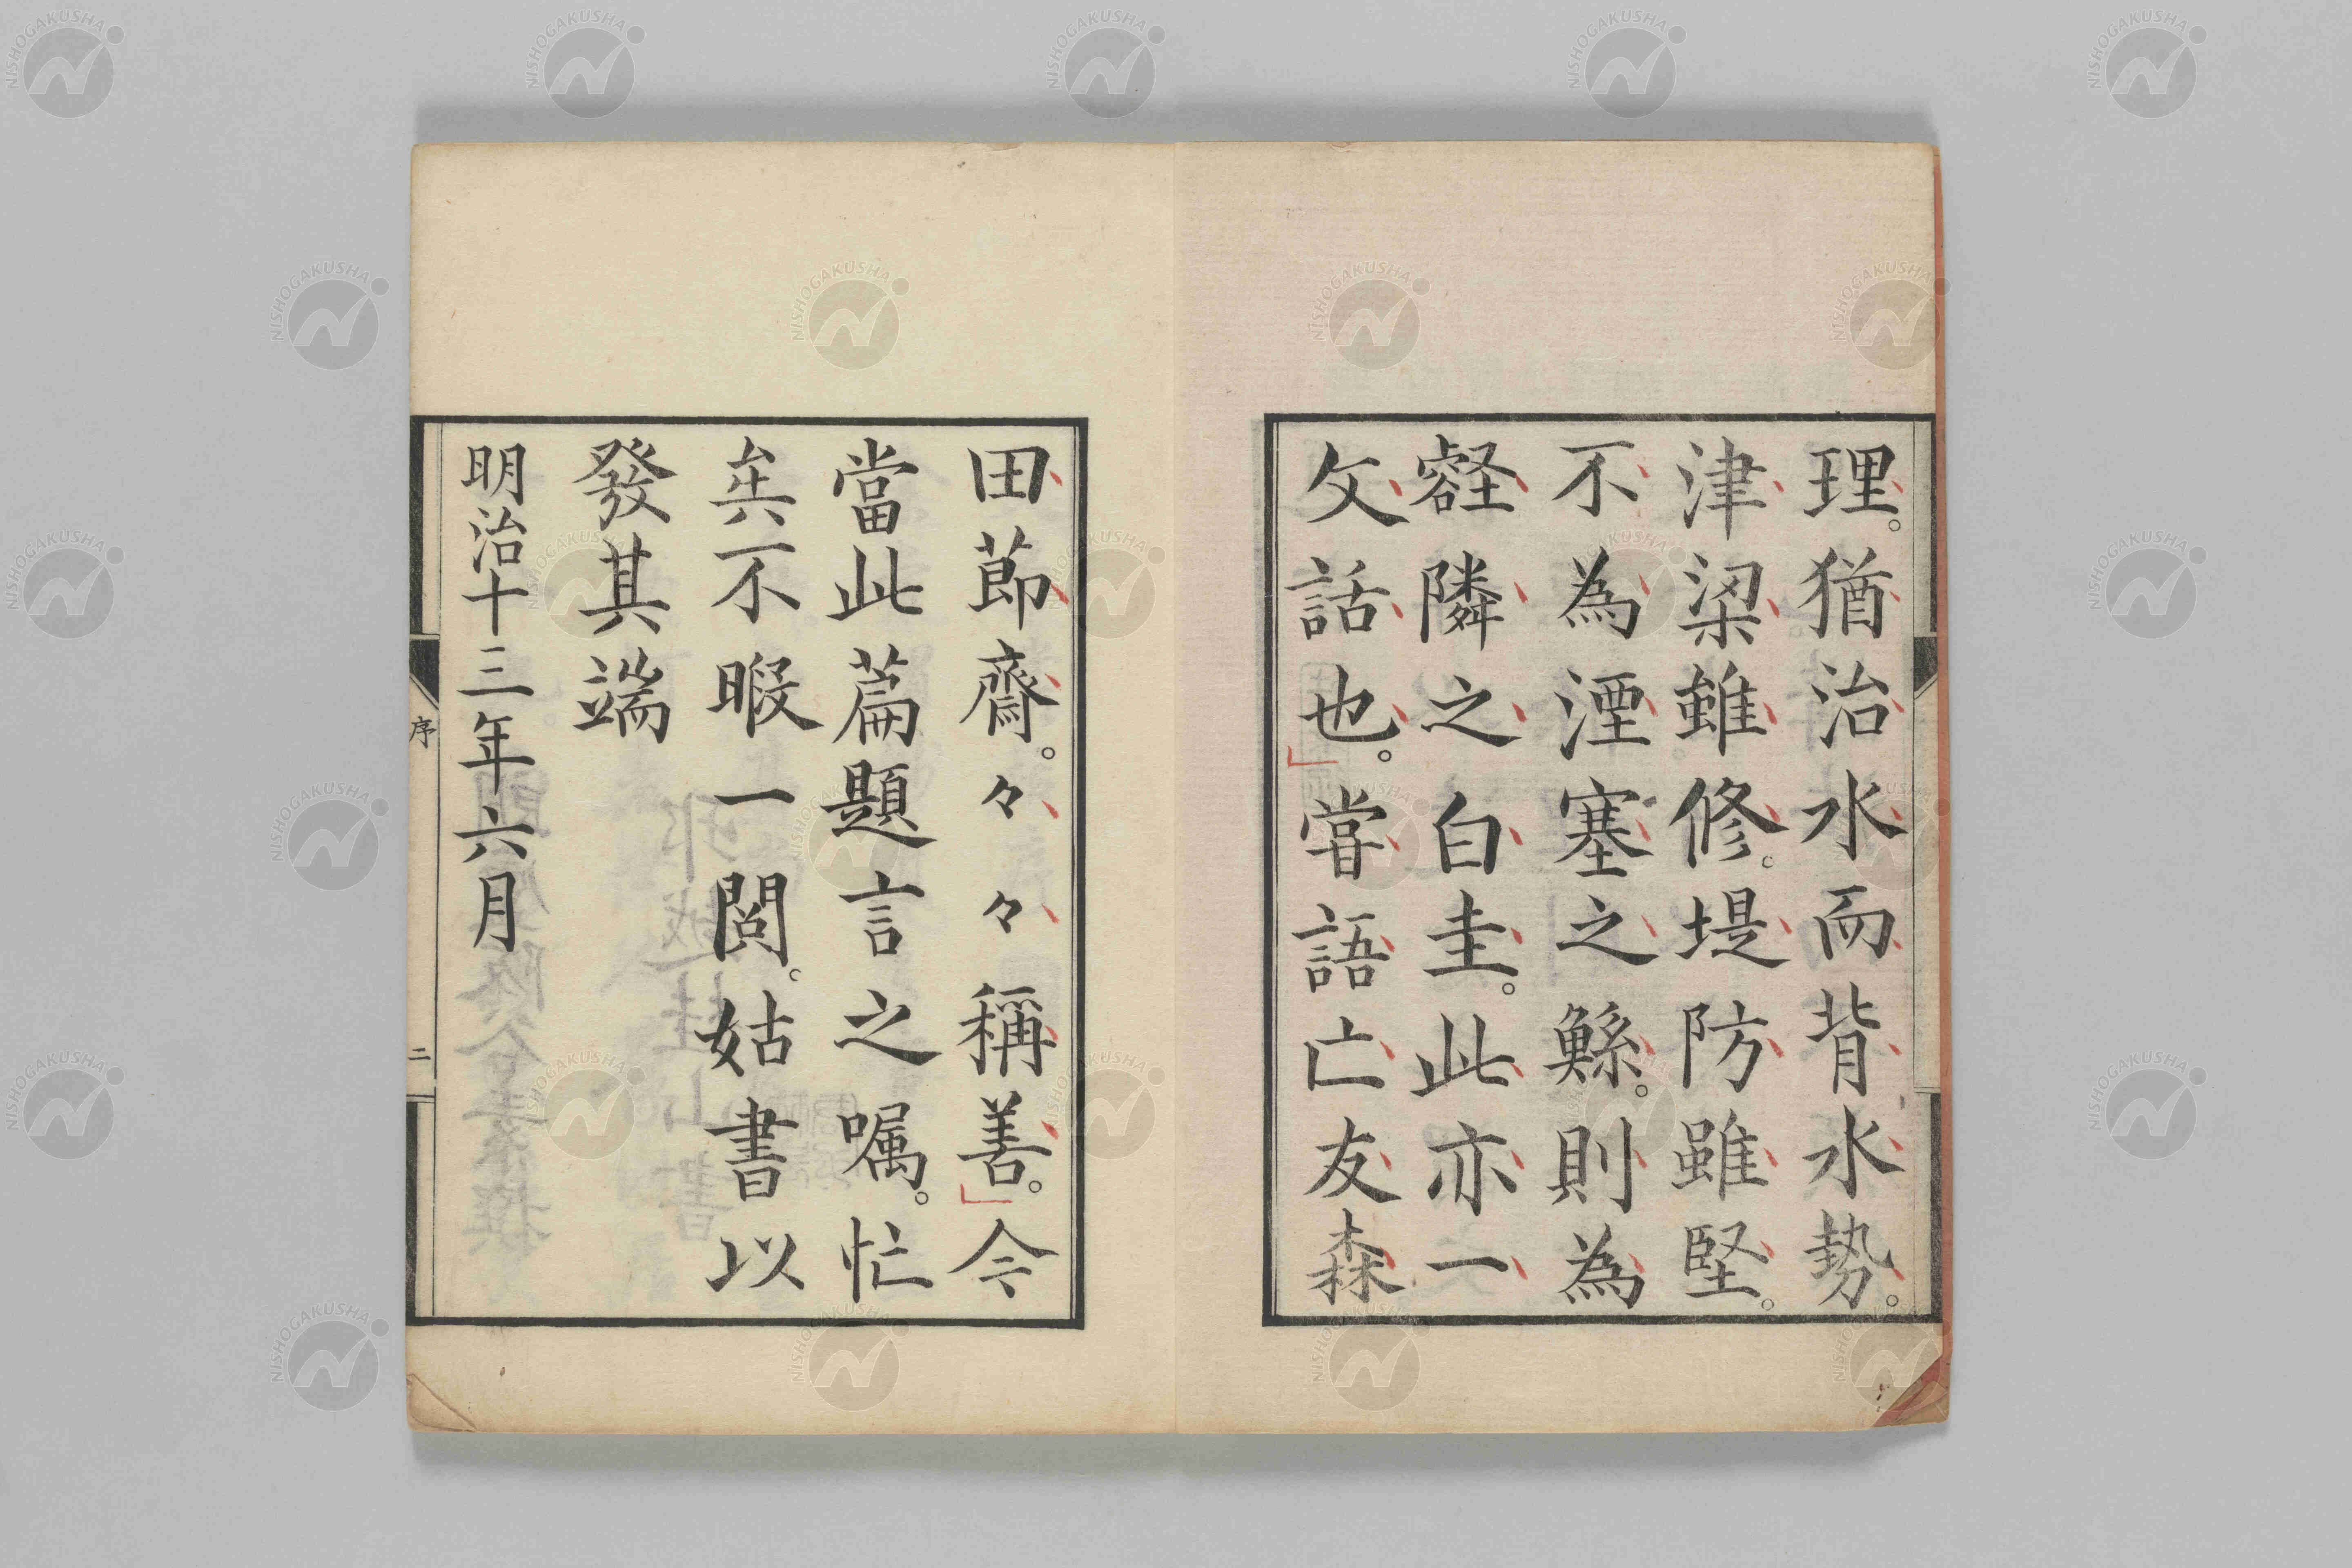 理。猶治水而背水勢。
津梁雖修。堤防雖堅。
不為湮塞之鯀。則為
壑隣之白圭。此亦一
文話也。」嘗語亡友森
田節齋。々々稱善。」今
當此篇題言之嘱。忙
矣不暇一閲。姑書以
發其端
明治十三年六月
序
二
NISHOGAKUSHA